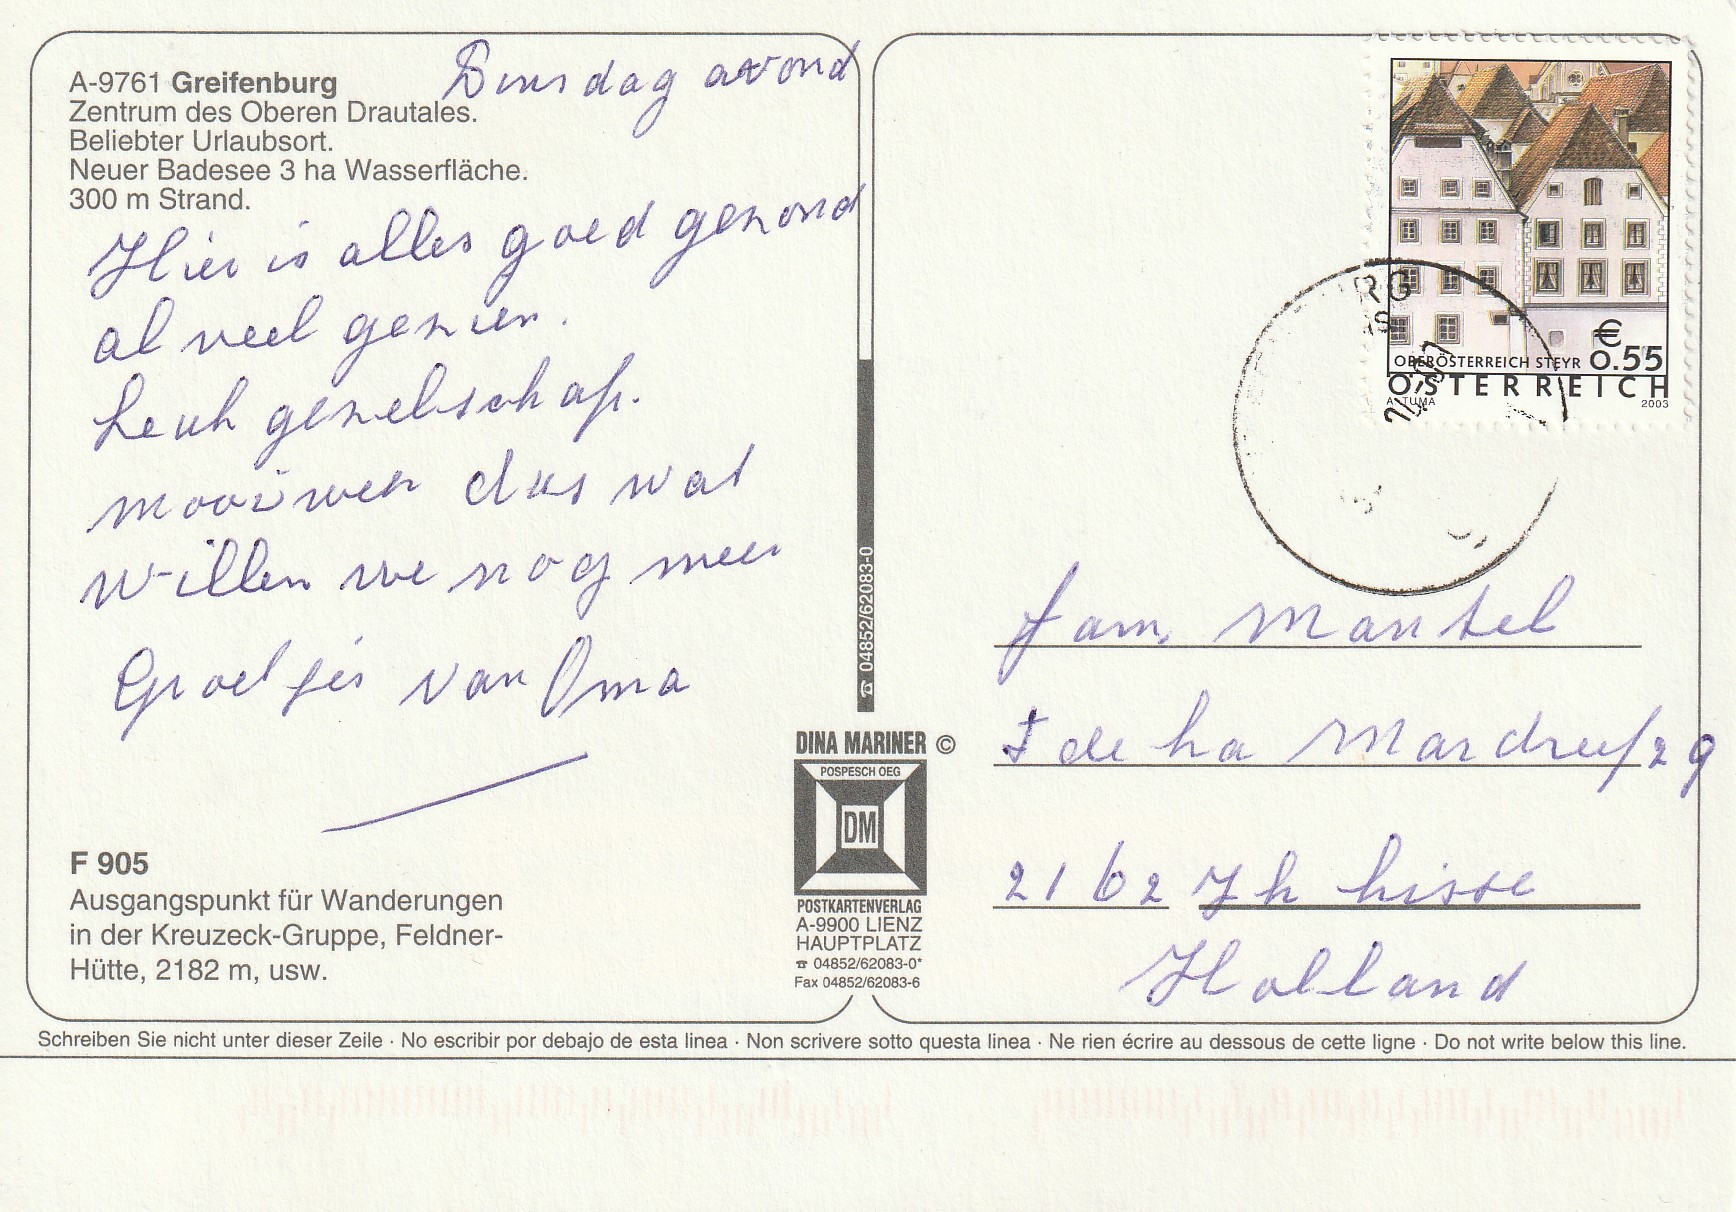 A-9761 Greifenburg
Zentrum des Oberen Drautales.
Beliebter Urlaubsort.
Neuer Badesee 3 ha Wasserfläche.
300 m Strand.
Dinsdag avond
Hier is alles goed gezond
al veel gezien.
Leuk gezelschap.
mooi weer dus wat
willen we nog meer
Groetjes van Oma
F 905
Ausgangspunkt für Wanderungen
in der Kreuzeck-Gruppe, Feldner-
Hütte, 2182 m, usw.
☎ 04852/62083-0
DINA MARINER ©
POSPESCH OEG
DM
POSTKARTENVERLAG
A-9900 LIENZ
HAUPTPLATZ
☎ 04852/62083-0*
Fax 04852/62083-6
€
0.55
OBERÖSTERREICH STEYR
ÖSTERREICH
A. TUMA 2003
RG
fam. Mantel
29
2162
Holland
Schreiben Sie nicht unter dieser Zeile · No escribir por debajo de esta linea · Non scrivere sotto questa linea · Ne rien écrire au dessous de cette ligne · Do not write below this line.